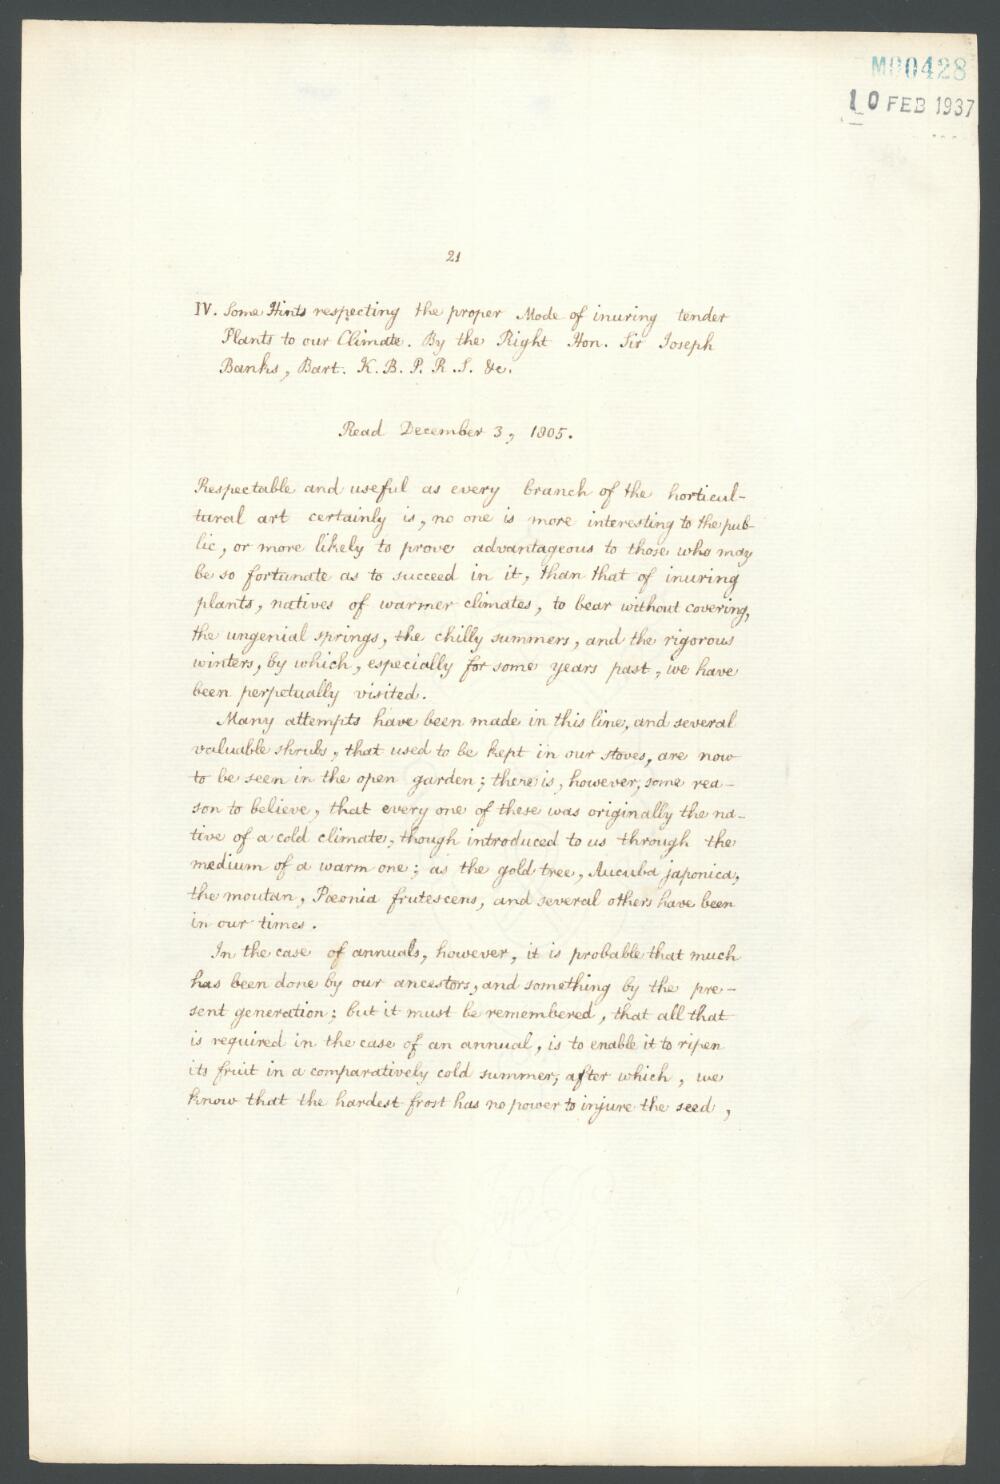 M00428
10 FEB 1937
21
IV. Some Hints respecting the proper Mode of inuring tender
Plants to our Climate. By the Right Hon. Sir Joseph
Banks, Bart. K. B. P. R. S. &c.
Read December 3, 1805.
Respectable and useful as every branch of the horticul-
tural art certainly is, no one is more interesting to the pub-
lic, or more likely to prove advantageous to those who may
be so fortunate as to succeed in it, than that of inuring
plants, natives of warmer climates, to bear without covering,
the ungenial springs, the chilly summers, and the rigorous
winters, by which, especially for some years past, we have
been perpetually visited.
Many attempts have been made in this line, and several
valuable shrubs, that used to be kept in our stoves, are now
to be seen in the open garden; there is, however, some rea-
son to believe, that every one of these was originally the na-
tive of a cold climate, though introduced to us through the
medium of a warm one; as the gold tree, Aucuba japonica,
the moutan, Pæonia frutescens, and several others have been
in our times.
In the case of annuals, however, it is probable that much
has been done by our ancestors, and something by the pre-
sent generation; but it must be remembered, that all that
is required in the case of an annual, is to enable it to ripen
its fruit in a comparatively cold summer, after which, we
know that the hardest frost has no power to injure the seed,